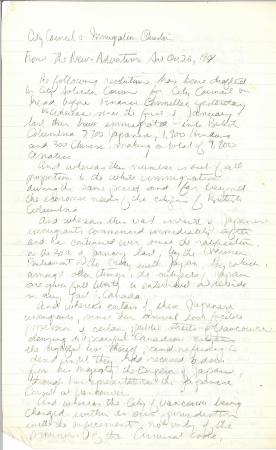 City Council & Immigration Question
From The News-Advertiser Sat Oct 26, 1907
The following resolution has been drafted
by City Solicitor Cowan for City Council &
read before Finance Committee yesterday
Whereas since the first of January
last there have immigrated into British
Columbia 7,700 Japanese, 1,900 Hindus
and 300 Chinese making a total of 9,900
Asiatics
And whereas this number is out of all
proportion to the white immigration
during the same period and far beyond
the economic needs of the citizens of British
Columbia
And whereas this vast invasion of Japanese
immigrants commenced immediately after
and has continued ever since the ratification
on the 30th of January last by the Canadian
Parliament of the Treaty with Japan by which
amongst other things the subjects of Japan
are given full liberty to enter travel & reside
in any part of Canada
And whereas certain of these Japanese
immigrants, since their arrival took
possession of certain public streets of Vancouver
denying to peaceful Canadian citizens
the right to use thereof, and refusing to
until they had received
from his Majesty the Emperor of Japan,
through his representative the Japanese
Consul at Vancouver
And whereas the City of Vancouver being
charged within its own jurisdiction
with the enforcement, not only of the
provisions of the Criminal Code,